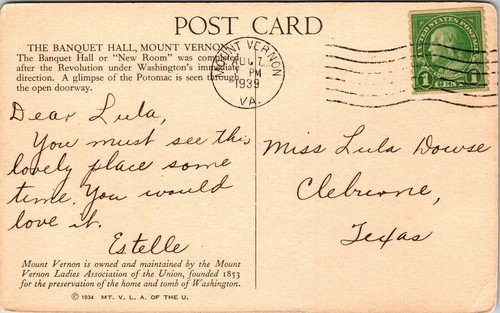 POST CARD
THE BANQUET HALL, MOUNT VERNON
The Banquet Hall or "New Room" was completed
after the Revolution under Washington's immediate
direction. A glimpse of the Potomac is seen through
the open doorway.
MOUNT VERNON
7
PM
1939
VA.
UNITED STATES POSTAGE
1 CENT 1
Dear Lula,
You must see this
lovely place some
time. You would
love it.
Estelle
Miss Lula Dowse
Cleburne,
Texas
Mount Vernon is owned and maintained by the Mount
Vernon Ladies Association of the Union, founded 1853
for the preservation of the home and tomb of Washington.
© 1934 MT. V. L. A. OF THE U.